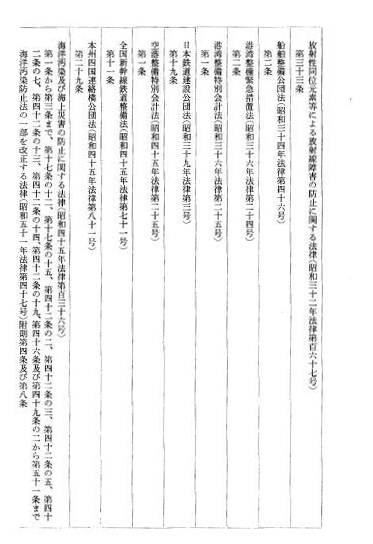 放射性同位元素等による放射線障害の防止に関する法律(昭和三十二年法律第百六十七号)
第三十三条
船舶整備公団法(昭和三十四年法律第四十六号)
第二条
港湾整備緊急措置法(昭和三十六年法律第二十四号)
第二条
港湾整備特別会計法(昭和三十六年法律第二十五号)
第一条
日本鉄道建設公団法(昭和三十九年法律第三号)
第十九条
空港整備特別会計法(昭和四十五年法律第二十五号)
第一条
全国新幹線鉄道整備法(昭和四十五年法律第七十一号)
第十一条
本州四国連絡橋公団法(昭和四十五年法律第八十一号)
第二十九条
海洋汚染及び海上災害の防止に関する法律(昭和四十五年法律第百三十六号)
第一条から第三条まで、第十七条の十二、第十七条の十五、第四十二条の二、第四十二条の三、第四十二条の五、第四十
二条の七、第四十二条の十三、第四十二条の十四、第四十二条の十九、第四十六条及び第四十九条の二から第五十一条まで
海洋汚染防止法の一部を改正する法律(昭和五十一年法律第四十七号)附則第四条及び第八条